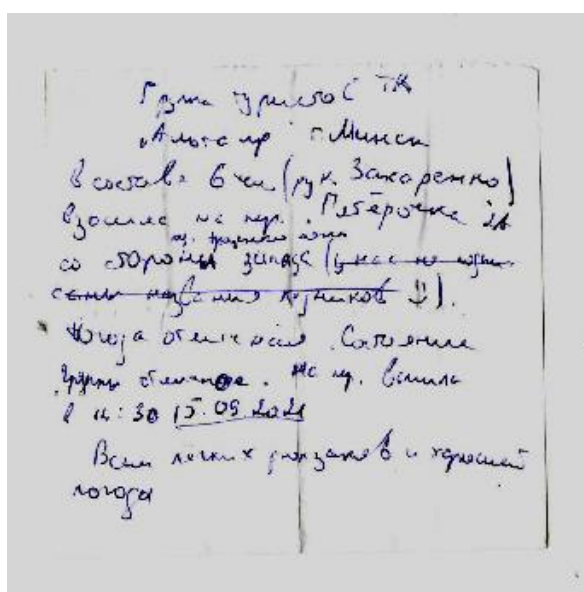 Группа туристов ТК
"Альтаир" г. Минск
В составе 6 чел (рук. Захаренко)
Взошла на пер. Пятёрочка 2А
оз.
со стороны запада (у нас не
названия ледников ⇓).
Погода отличная. Состояние
группы отличное. На пер. вышли
в 14:30 15.09.2021
Всем легких рюкзаков и хорошей
погоды